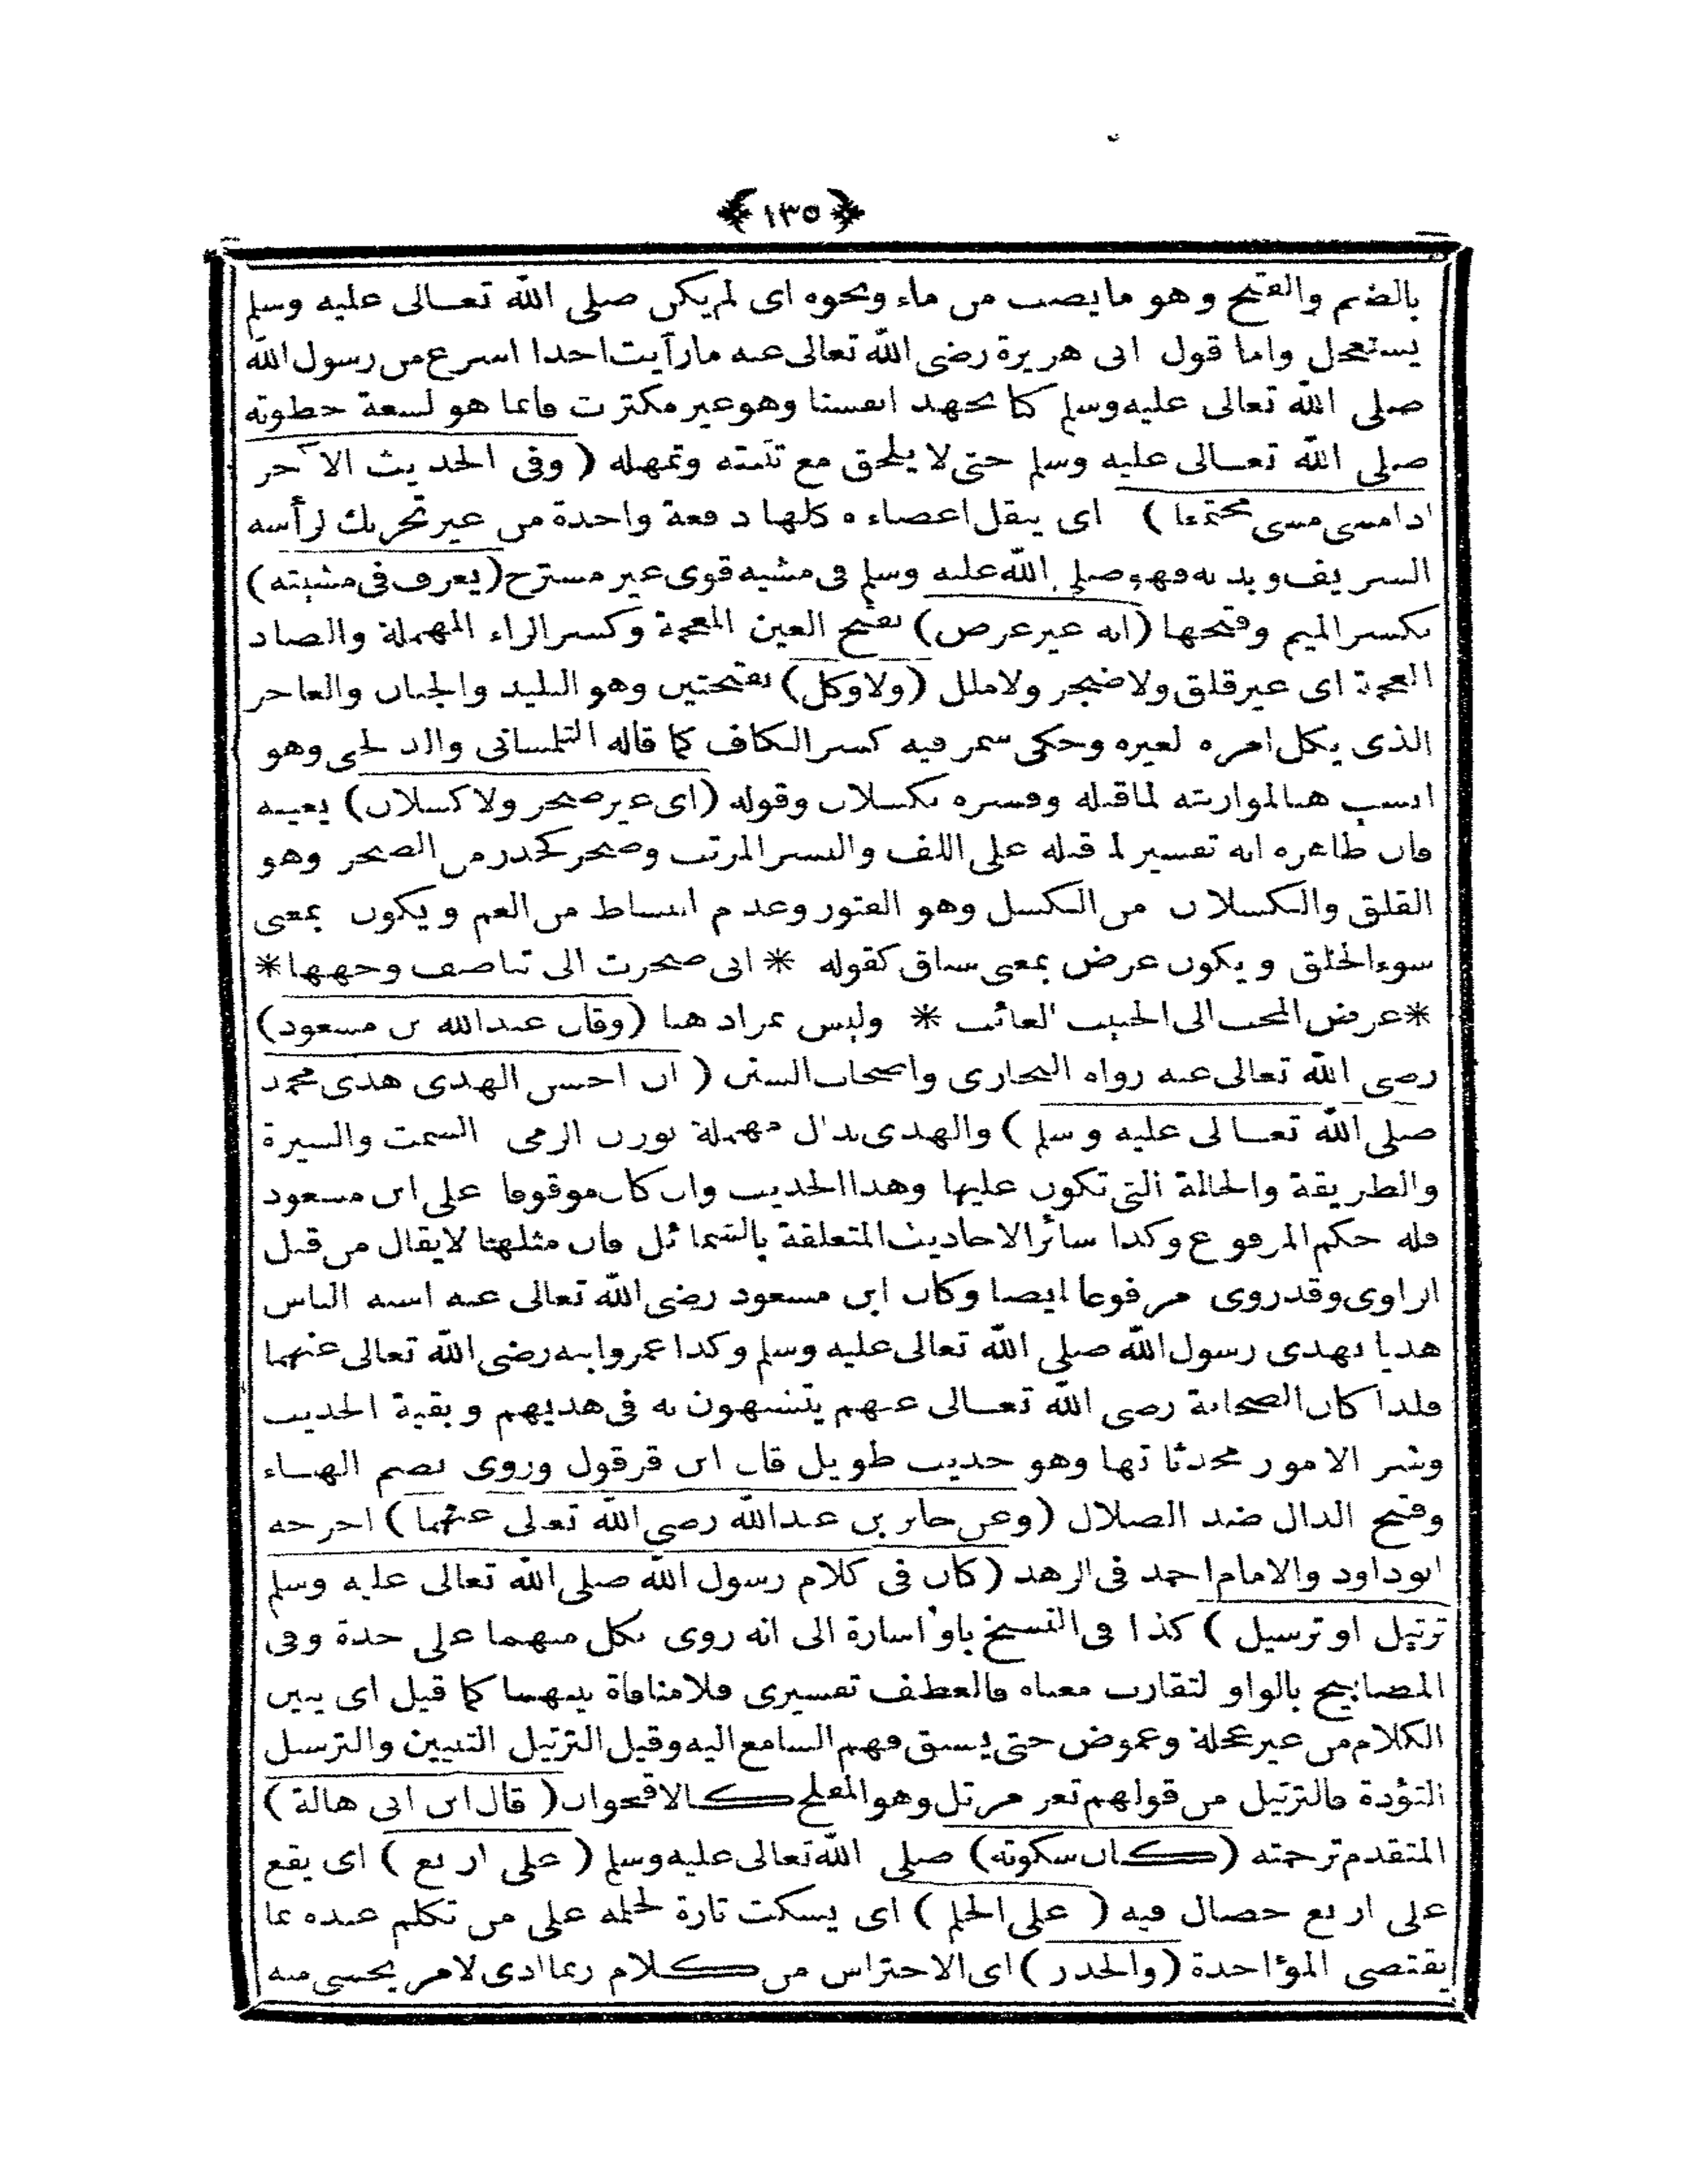 ﴿١٣٥﴾
بالضم والفتح وهو مايصب من ماء ونحوه اى لم يكن صلى الله تعـالى عليه وسلم
يستعجل واما قول ابى هريرة رضى الله تعالى عنه مارآيت احدا اسرع من رسول الله
صلى الله تعالى عليه وسلم كنا نجهد انفسنا وهو غير مكترث فانما هو لسعة خطوته
صلى الله تعـالى عليه وسلم حتى لا يلحق مع تثبته وتمهله ( وفى الحديث الآخر
اذا مشى مشى مجتمعا ) اى ينقل اعضاءه كلها دفعة واحدة من غير تحريك لرأسه
الشريف ويديه فهو صلى الله عليه وسلم فى مشيه قوى غير مسترخ (يعرف فى مشيته)
بكسر الميم وفتحها (انه غير غرض) بفتح الغين المعجمة وكسر الراء المهملة والضاد
المعجمة اى غير قلق ولا ضجر ولا ملل (ولا وكل) بفتحتين وهو البليد والجبان والعاجز
الذى يكل امره لغيره وحكى سمر فيه كسر الكاف كما قاله التلمسانى والدلجى وهو
انسب هنا لموازنته لماقبله وفسره بكسلان وقوله (اى غير ضجر ولا كسلان) يعينه
فان ظاهره انه تفسير لما قبله على اللف والنشر المرتب وضجر كحذر من الضجر وهو
القلق والكسلان من الكسل وهو الفتور وعدم انبساط من الغم ويكون بمعنى
سوء الخلق ويكون غرض بمعنى ساق كقوله * انى ضجرت الى تناصف وجهها *
* غرض المحب الى الحبيب الغائب * وليس بمراد هنا (وقال عبدالله بن مسعود)
رضى الله تعالى عنه رواه البخارى واصحاب السنن ( ان احسن الهدى هدى محمد
صلى الله تعـالى عليه وسلم ) والهدى بدال مهملة بوزن الرمى السمت والسيرة
والطريقة والحالة التى تكون عليها وهذا الحديث وان كان موقوفا على ابن مسعود
فله حكم المرفوع وكذا سائر الاحاديث المتعلقة بالشمائل فان مثلها لايقال من قبل
الراوى وقد روى مرفوعا ايضا وكان ابن مسعود رضى الله تعالى عنه اشبه الناس
هديا بهدى رسول الله صلى الله تعالى عليه وسلم وكذا عمر وابنه رضى الله تعالى عنهما
ولذا كان الصحابة رضى الله تعـالى عنهم يتشبهون به فى هديهم وبقية الحديث
وشر الامور محدثاتها وهو حديث طويل قال ابن قرقول وروى بضم الهـاء
وفتح الدال ضد الضلال (وعن جابر بن عبدالله رضى الله تعالى عنهما ) اخرجه
ابوداود والامام احمد فى الزهد (كان فى كلام رسول الله صلى الله تعالى عليه وسلم
ترتيل او ترسيل ) كذا فى النسخ باو اشارة الى انه روى بكل منهما على حدة وفى
المصابيح بالواو لتقارب معناه فالعطف تفسيرى فلا منافاة بينهما كما قيل اى يبين
الكلام من غير عجلة وغموض حتى يسبق فهم السامع اليه وقيل الترتيل التبيين والترسل
التؤدة فالترتيل من قولهم ثغر مرتل وهو المفلج كالاقحوان ( قال ابن ابى هالة )
المتقدم ترجمته (كان سكوته) صلى الله تعالى عليه وسلم ( على اربع ) اى يقع
على اربع خصال فيه ( على الحلم ) اى يسكت تارة لحلمه على من تكلم عنده بما
يقتضى المؤاخذة (والحذر ) اى الاحتراس من كلام ربما ادى لامر يخشى منه